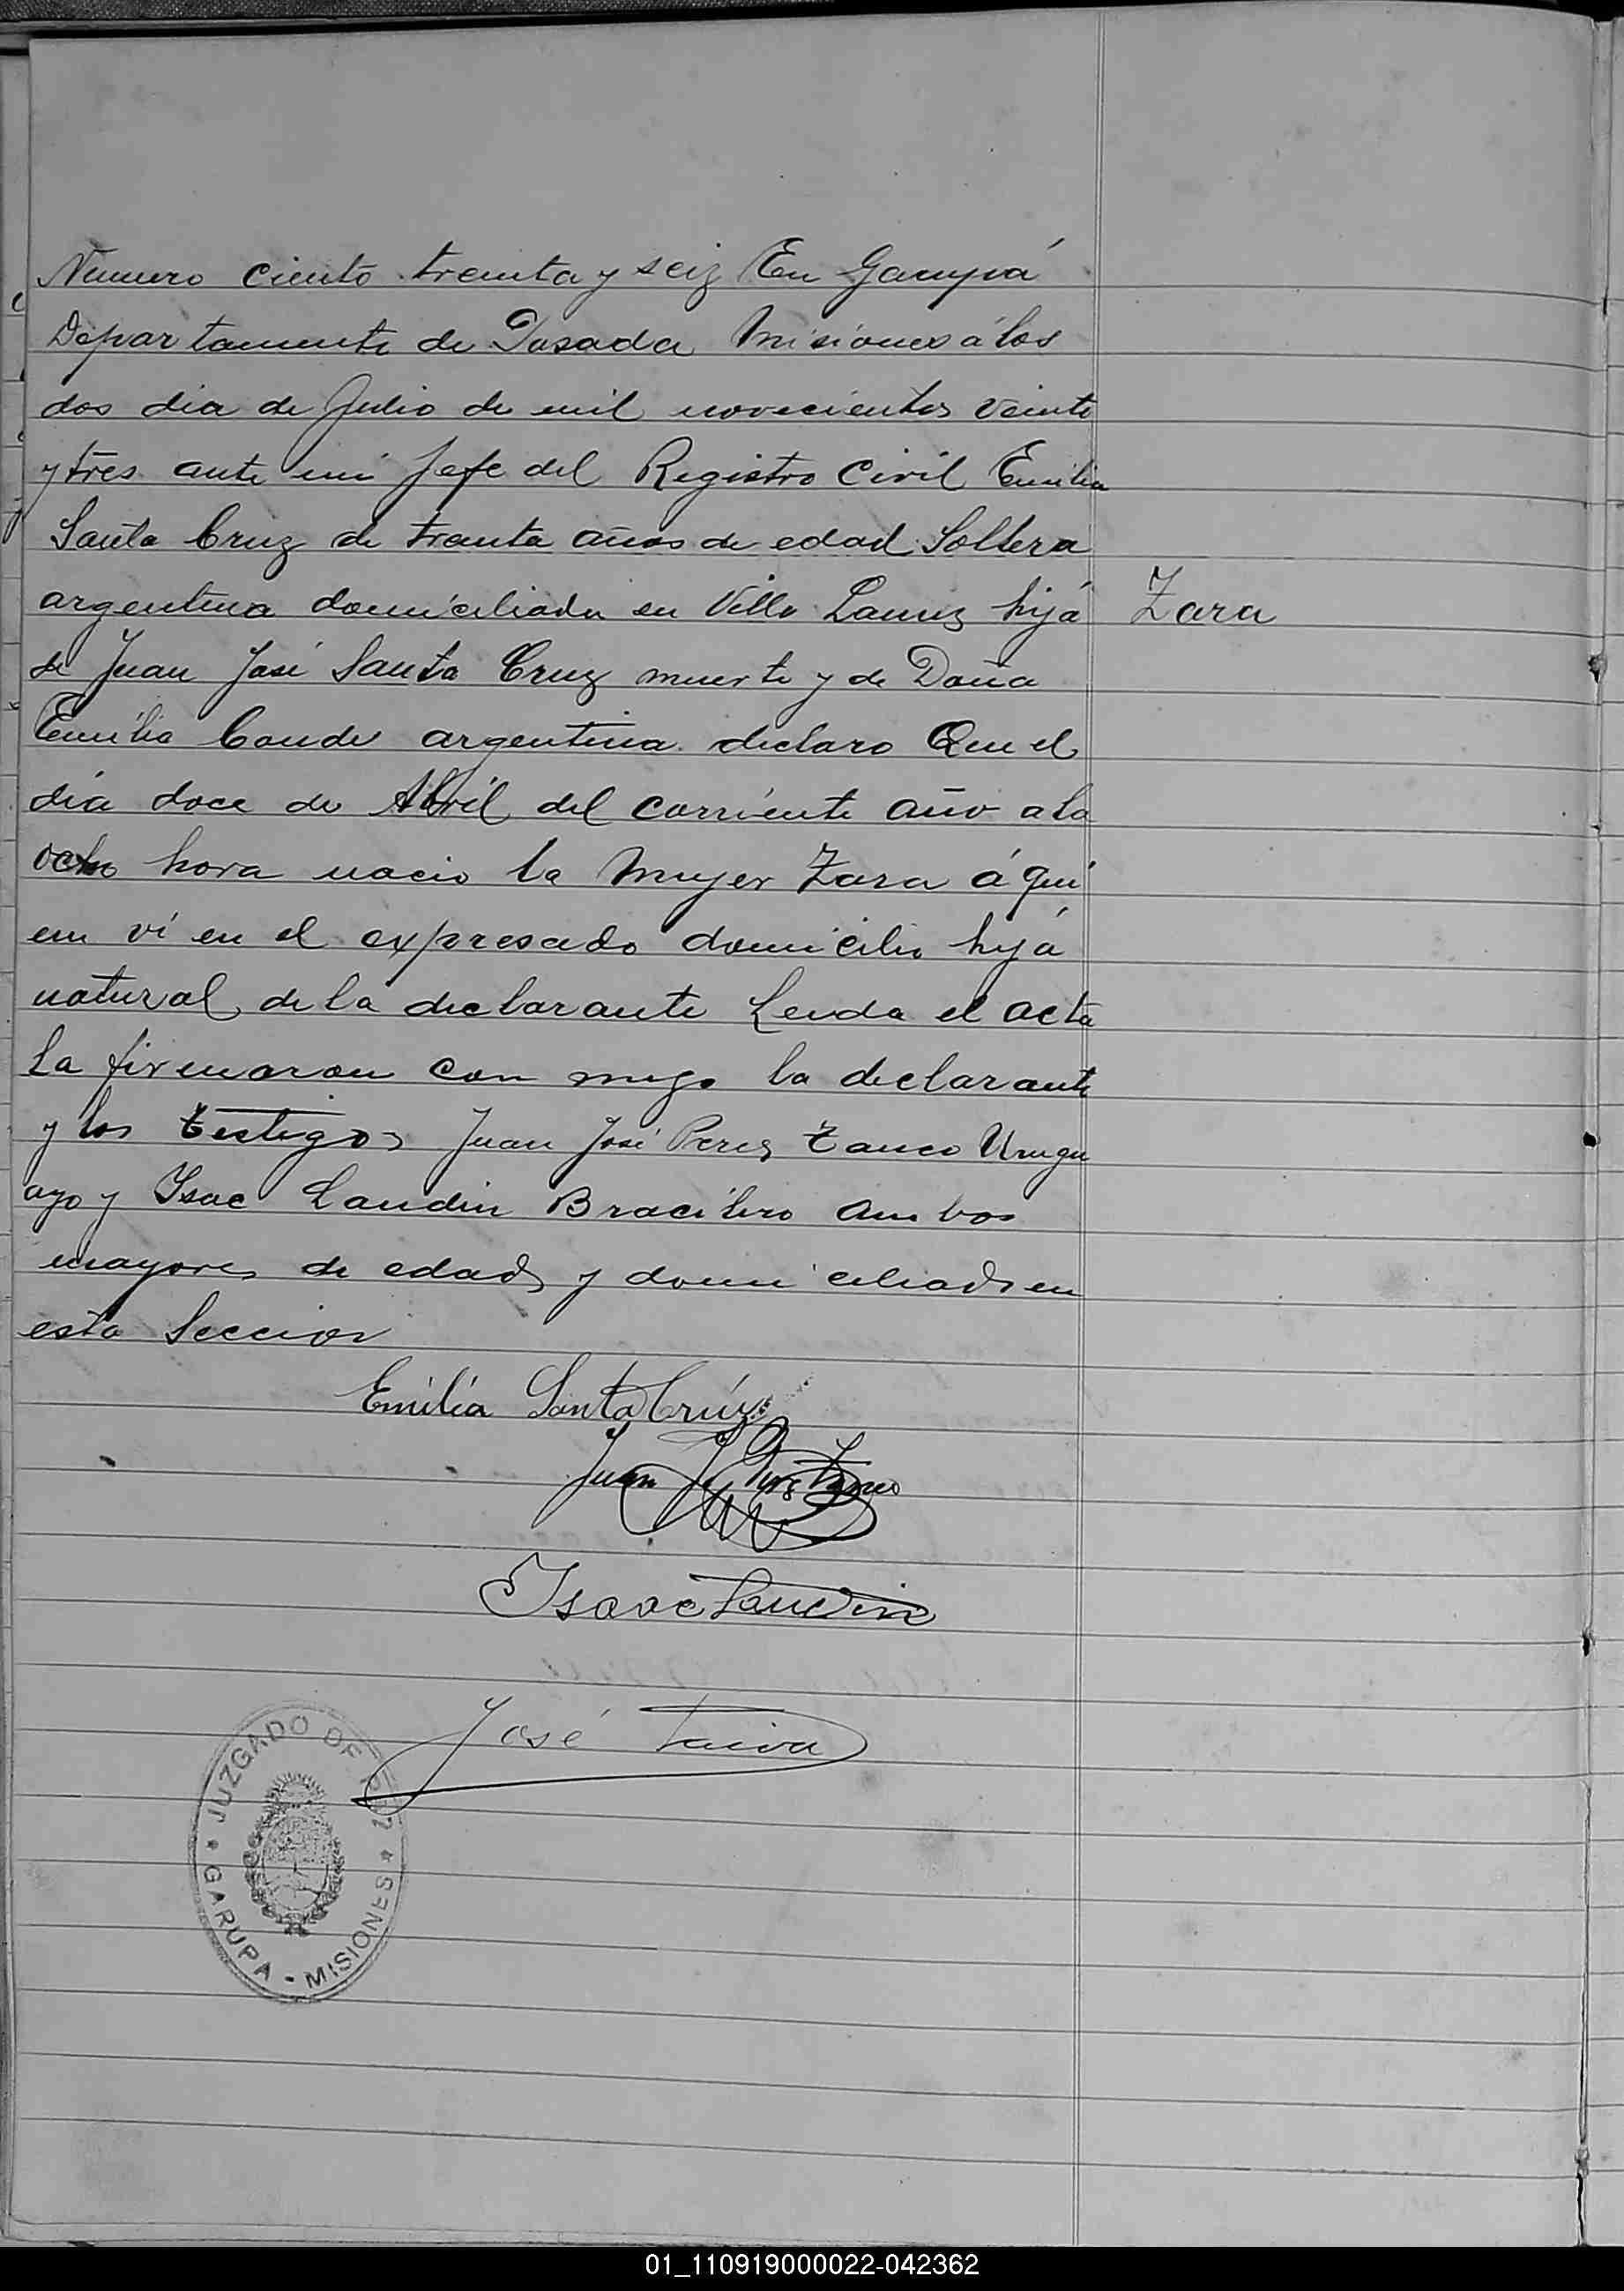 Numero ciento treinta y seiz En Garupá
Departamento de Posada Misiones á los
dos dia de Julio de mil novecientos veinte
y tres ante mi Jefe del Registro Civil Emilia
Santa Cruz de treinta años de edad Soltera
argentina domiciliada en Villa Lanuz hijá
Zara
de Juan José Santa Cruz muerto y de Doña
Emilia Conde argentina declaro Que el
día doce de Abril del corriente año a la
ocho hora nacio la Mujer Zara á qui
en ví en el expresado domicilio hijá
natural de la declarante Leida el acta
La firmaron con migo la declarante
y los testigos Juan José Peres Tanco Urugu
ayo y Isac Landin Bracilero Ambos
mayores de edad y domiciliados en
esta Seccion
Emilia Santa Crúz
Juan J. Peres Tanco
Isaac Landin
José
JUZGADO DE PAZ
GARUPA - MISIONES
01_110919000022-042362